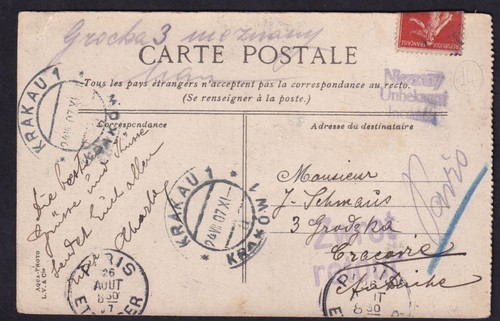 Grocka 3 nieznany
CARTE POSTALE
Tous les pays étrangers n'acceptent pas la correspondance au recto.
(Se renseigner à la poste.)
Correspondance
Adresse du destinataire
KRAKAU 1
24 VIII 07 XI
KRAKÓW 1
Die besten
Grüsse und Küsse
sendet Euch allen
Charles
Monsieur
J. Schmaus
3 Grodzka
Cracovie
Autriche
Paris
Zwrot
Nieznany
Unbekannt
KRAKAU 1
24 VIII 07 XI
KRAKÓW 1
PARIS
26
AOUT
8 30
07
PARIS
8 30
AQUA-PHOTO
L.V. & Cie
RÉPUBLIQUE FRANÇAISE